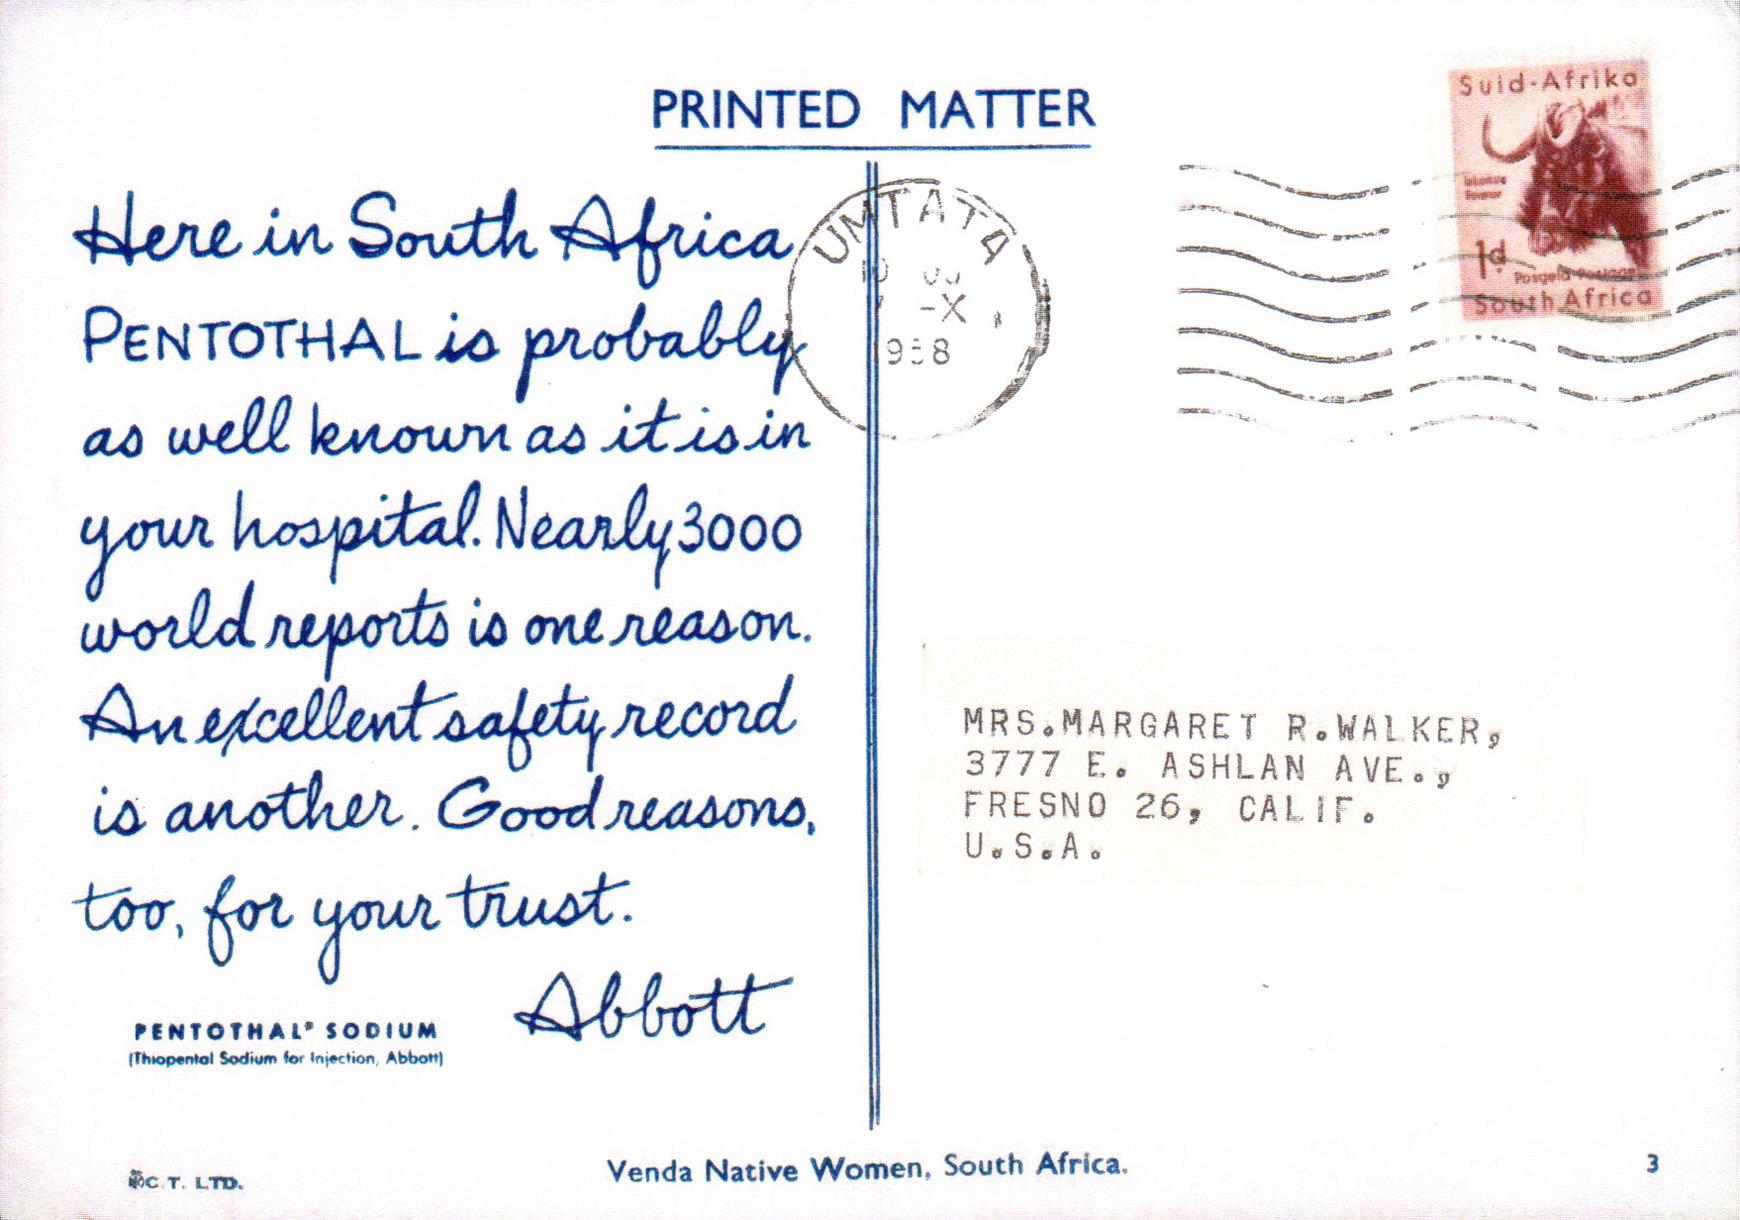 PRINTED MATTER
Here in South Africa
PENTOTHAL is probably
as well known as it is in
your hospital. Nearly 3000
world reports is one reason.
An excellent safety record
is another. Good reasons,
too, for your trust.
Abbott
PENTOTHAL® SODIUM
(Thiopental Sodium for Injection, Abbott)
C.T. LTD.
UMTATA
-X
1958
Suid-Afrika
1d
Posgeld Postage
South Africa
MRS.MARGARET R.WALKER,
3777 E. ASHLAN AVE.,
FRESNO 26, CALIF.
U.S.A.
Venda Native Women, South Africa.
3